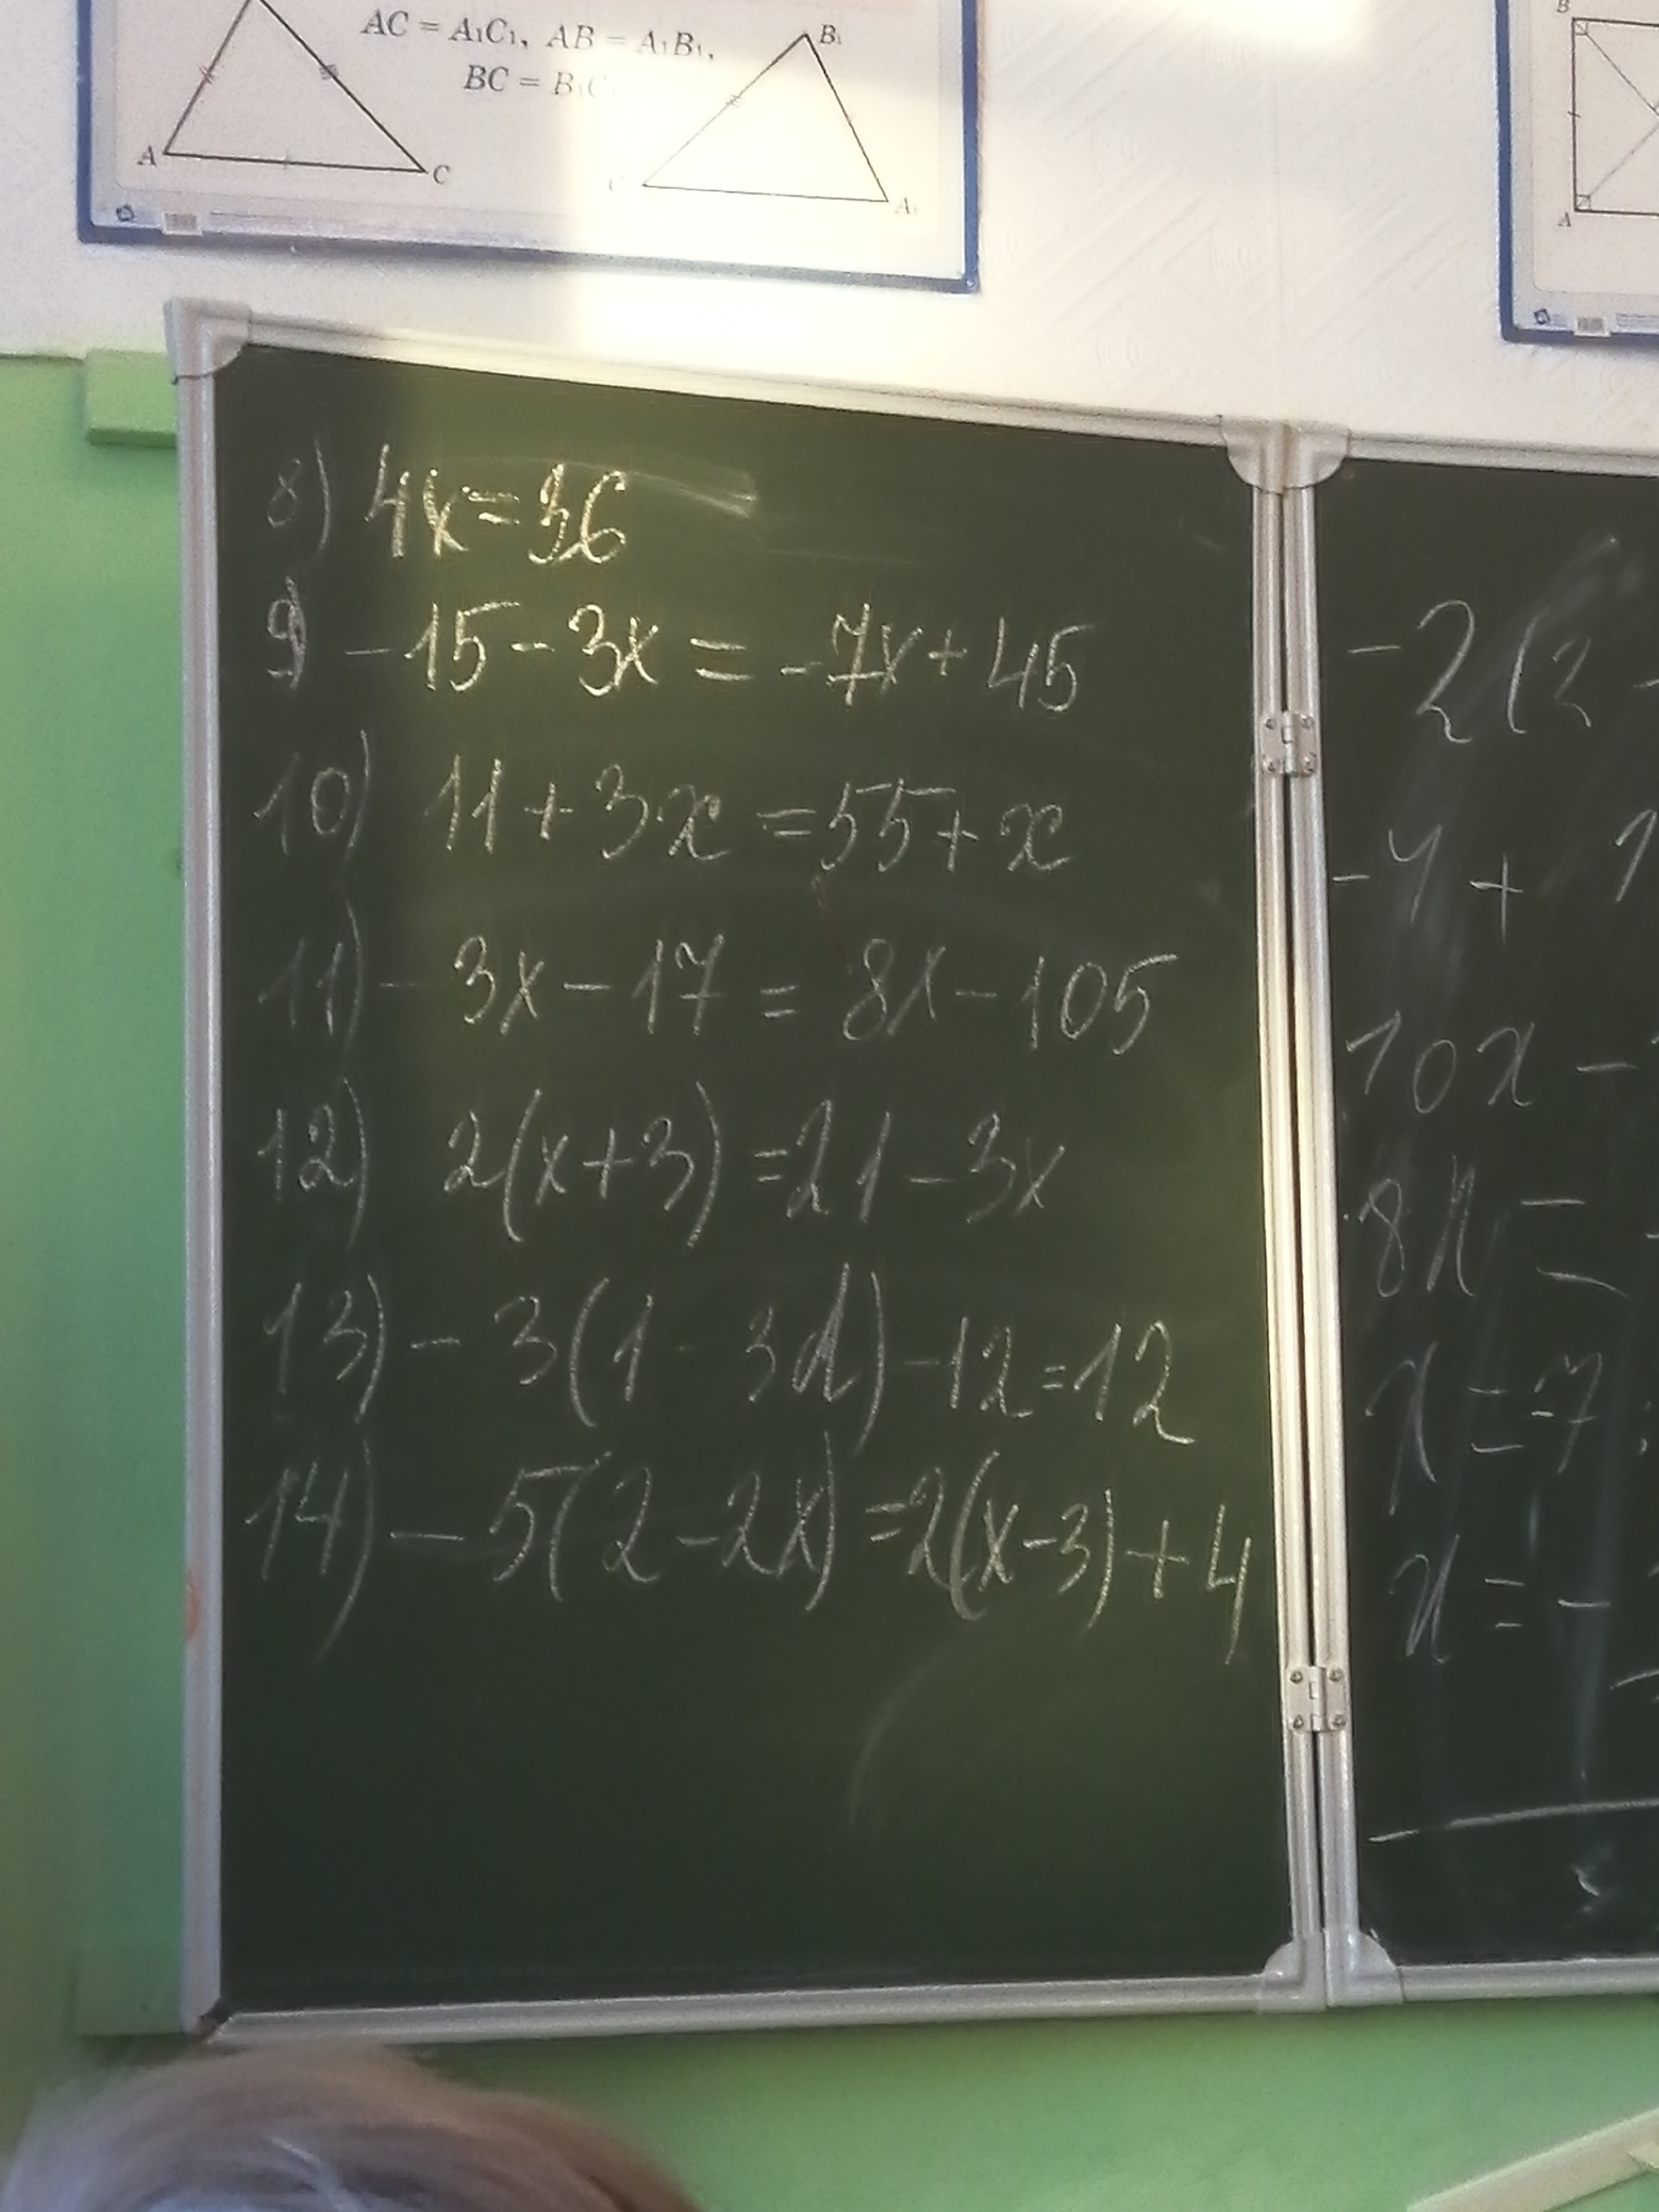 AC = A₁C₁, AB = A₁B₁,
BC = B₁C
A
C
B₁
C
A₁
B
A
8) 4x=36
9) -15-3x = -7x+45
10) 11+3x =55+x
11) - 3x-17 = 8x-105
12) 2(x+3) =21-3x
13) - 3(1-3d)-12=12
14) - 5(2-2x) =2(x-3)+4
-2(2-
-4 + 1
10x -
8x =
x = -7 :
x = -